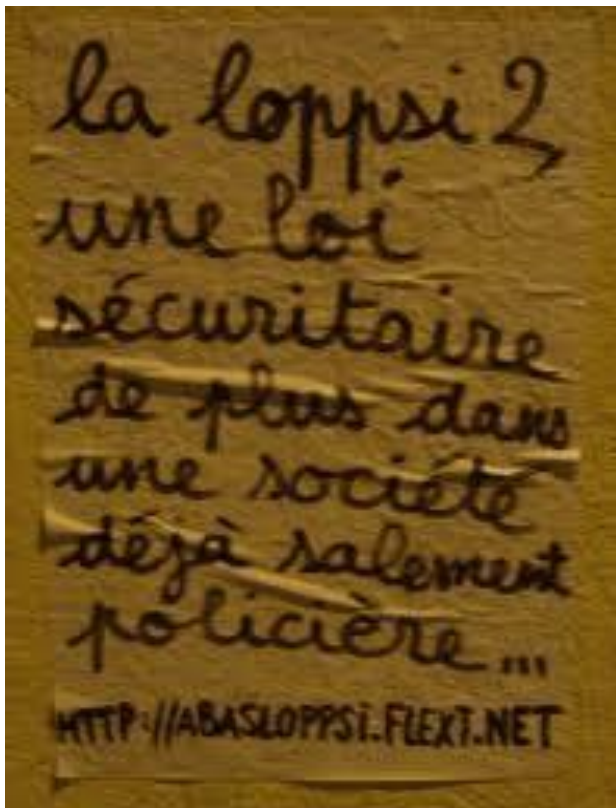 la loppsi 2,
une loi
sécuritaire
de plus dans
une société
déjà salement
policière...
HTTP://ABASLOPPSI.FLEXI.NET